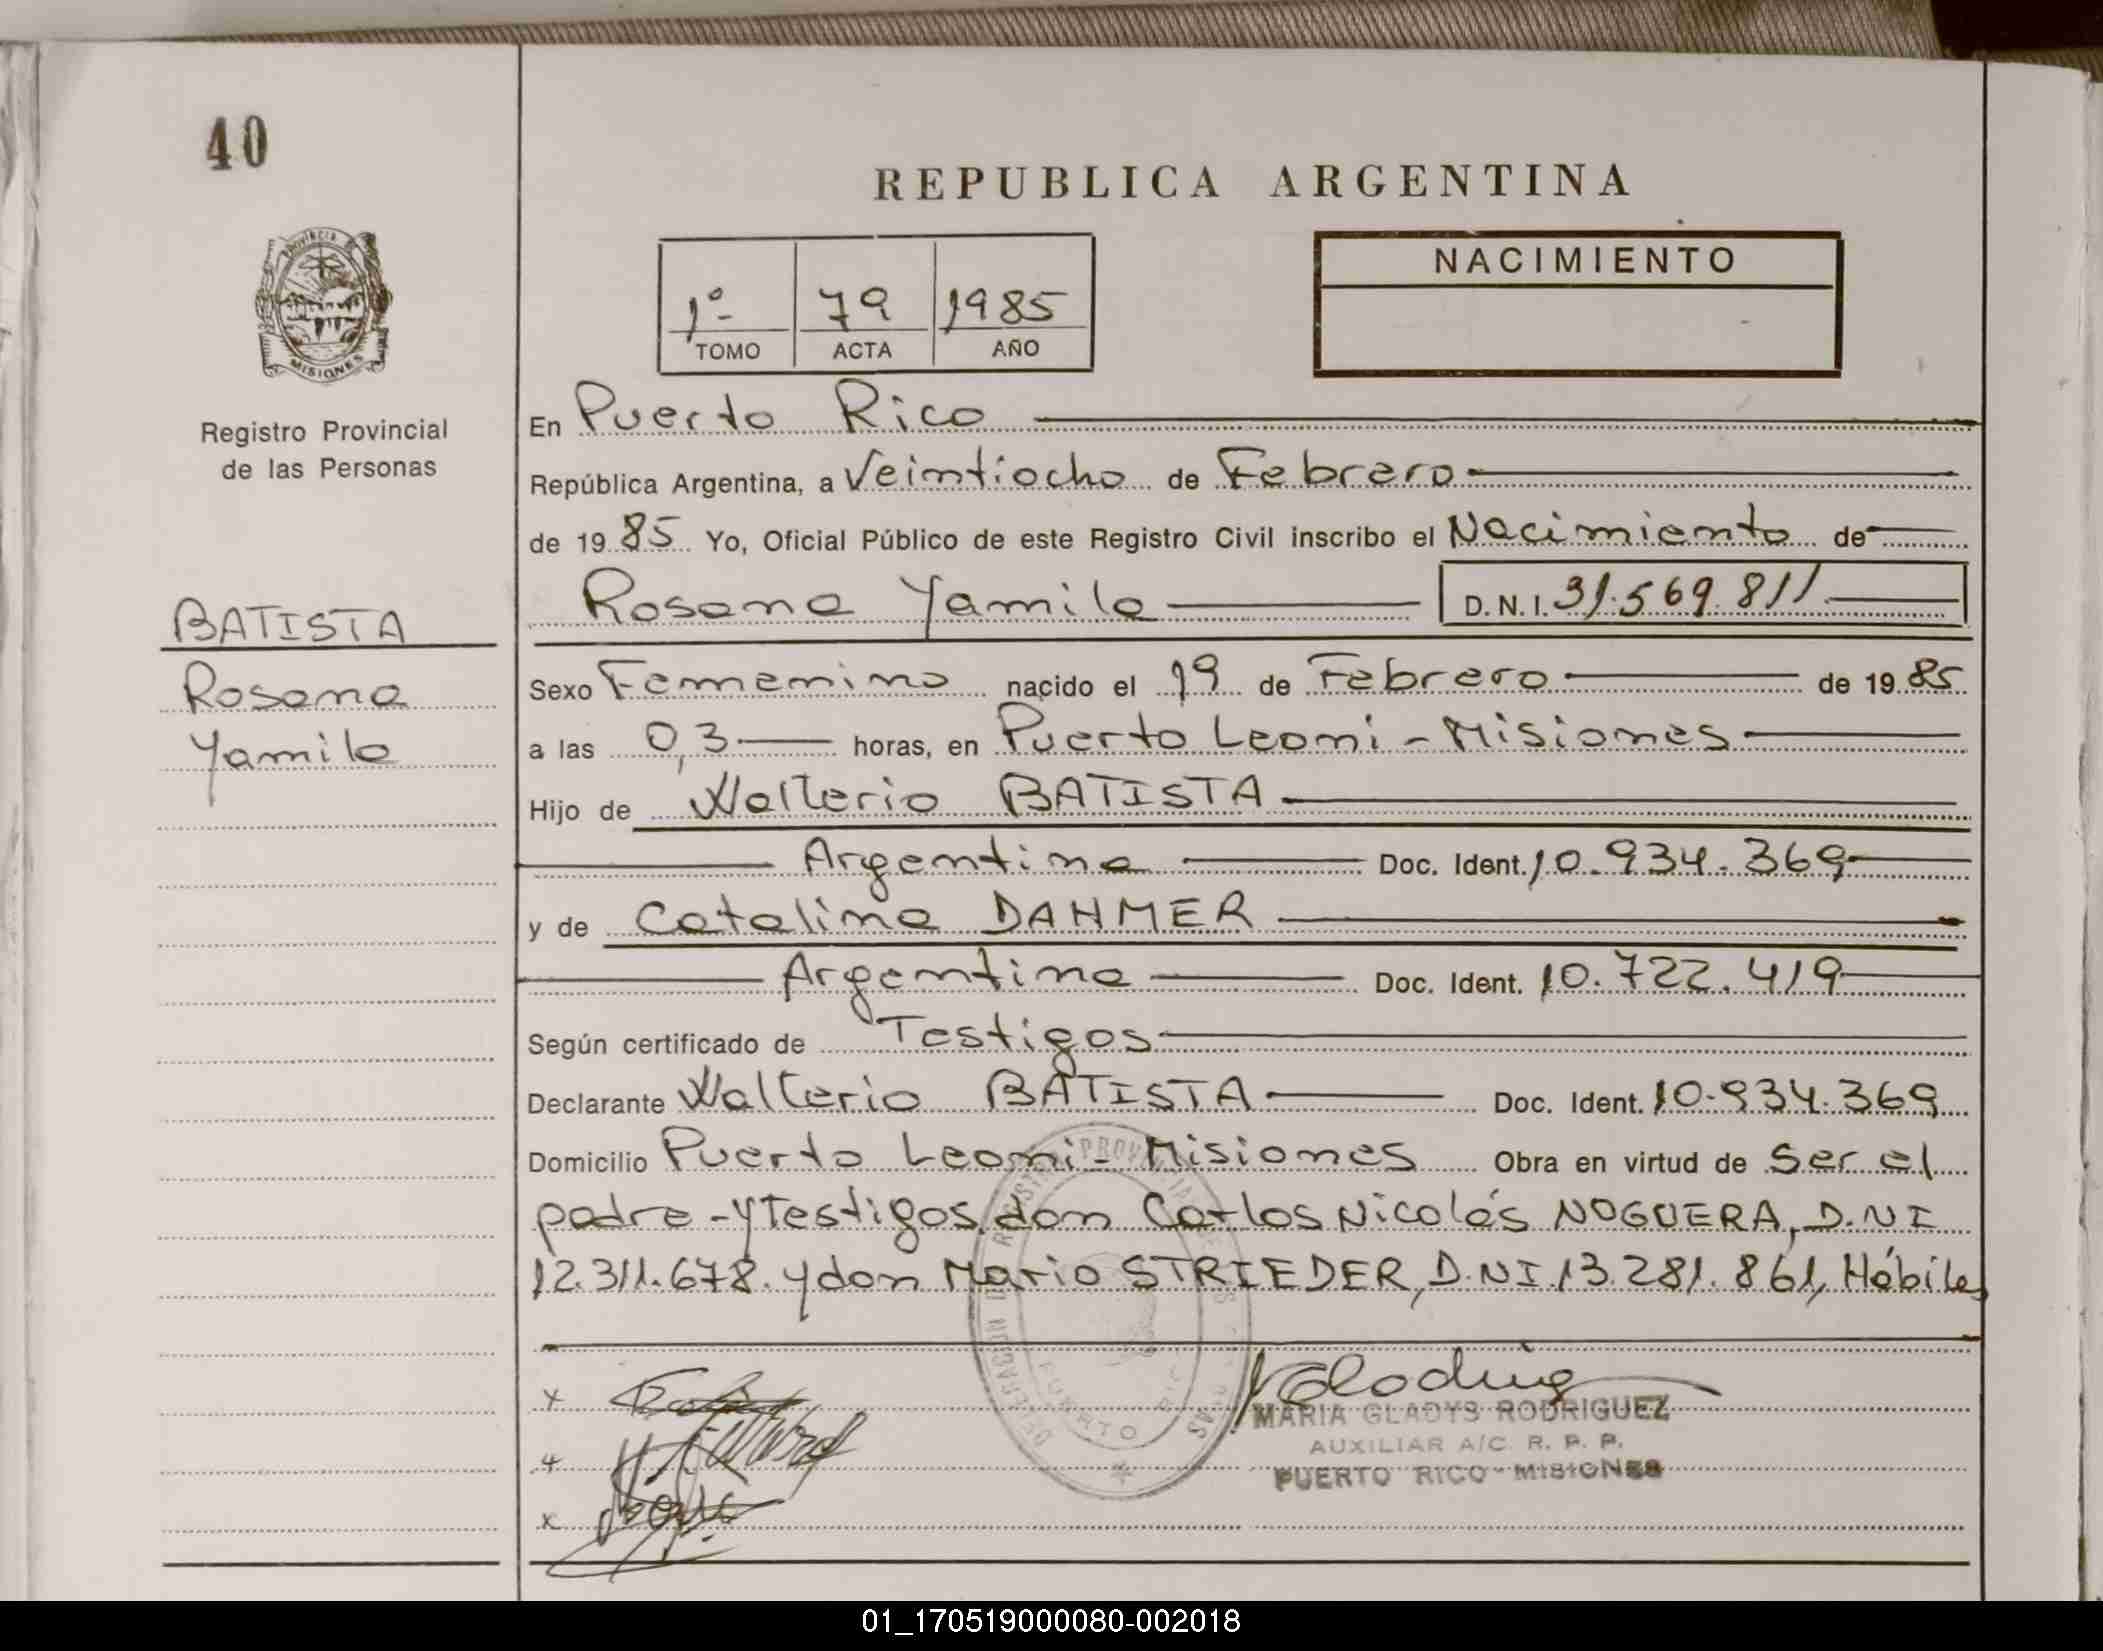 40
REPUBLICA ARGENTINA
PROVINCIA DE
MISIONES
Registro Provincial
de las Personas
BATISTA
Rosana
Yamila
1º 79 1985
TOMO ACTA AÑO
NACIMIENTO
En Puerto Rico
República Argentina, a Veintiocho de Febrero
de 1985 Yo, Oficial Público de este Registro Civil inscribo el Nacimiento de
Rosana Yamila D.N.I. 31.569.811
Sexo Femenino nacido el 19 de Febrero de 1985
a las 0,3 horas, en Puerto Leoni - Misiones
Hijo de Walterio BATISTA
Argentina Doc. Ident. 10.934.369
y de Catalina DAHMER
Argentina Doc. Ident. 10.722.419
Según certificado de Testigos
Declarante Walterio BATISTA Doc. Ident. 10.934.369
Domicilio Puerto Leoni - Misiones Obra en virtud de ser el
padre - y Testigos don Carlos Nicolás NOGUERA, D.N I
12.311.678. y don Mario STRIEDER, D.N I. 13.281.861, Hábiles
MARIA GLADYS RODRIGUEZ
AUXILIAR A/C R. P. P.
PUERTO RICO - MISIONES
01_170519000080-002018